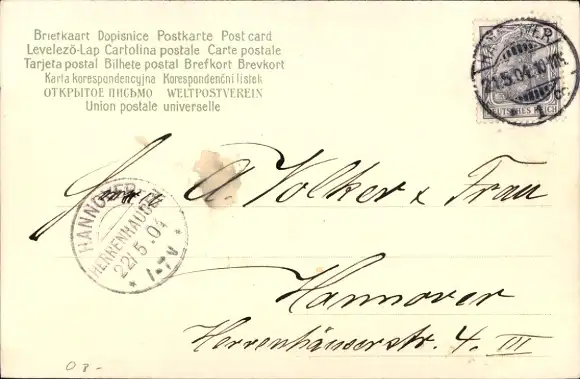 Briefkaart Dopisnice Postkarte Post card
Levelező-Lap Cartolina postale Carte postale
Tarjeta postal Bilhete postal Brefkort Brevkort
Karta korespondencyjna Korespondenční lístek
ОТКРЫТОЕ ПИСЬМО WELTPOSTVEREIN
Union postale universelle
HANNOVER
21.5.04.10-11N.
1 cc
DEUTSCHES REICH
A. Volker & Frau
HANNOVER
HERRENHAUSEN
22/5.04
* 1-7V *
Hannover
Herrenhäuserstr. 4. III